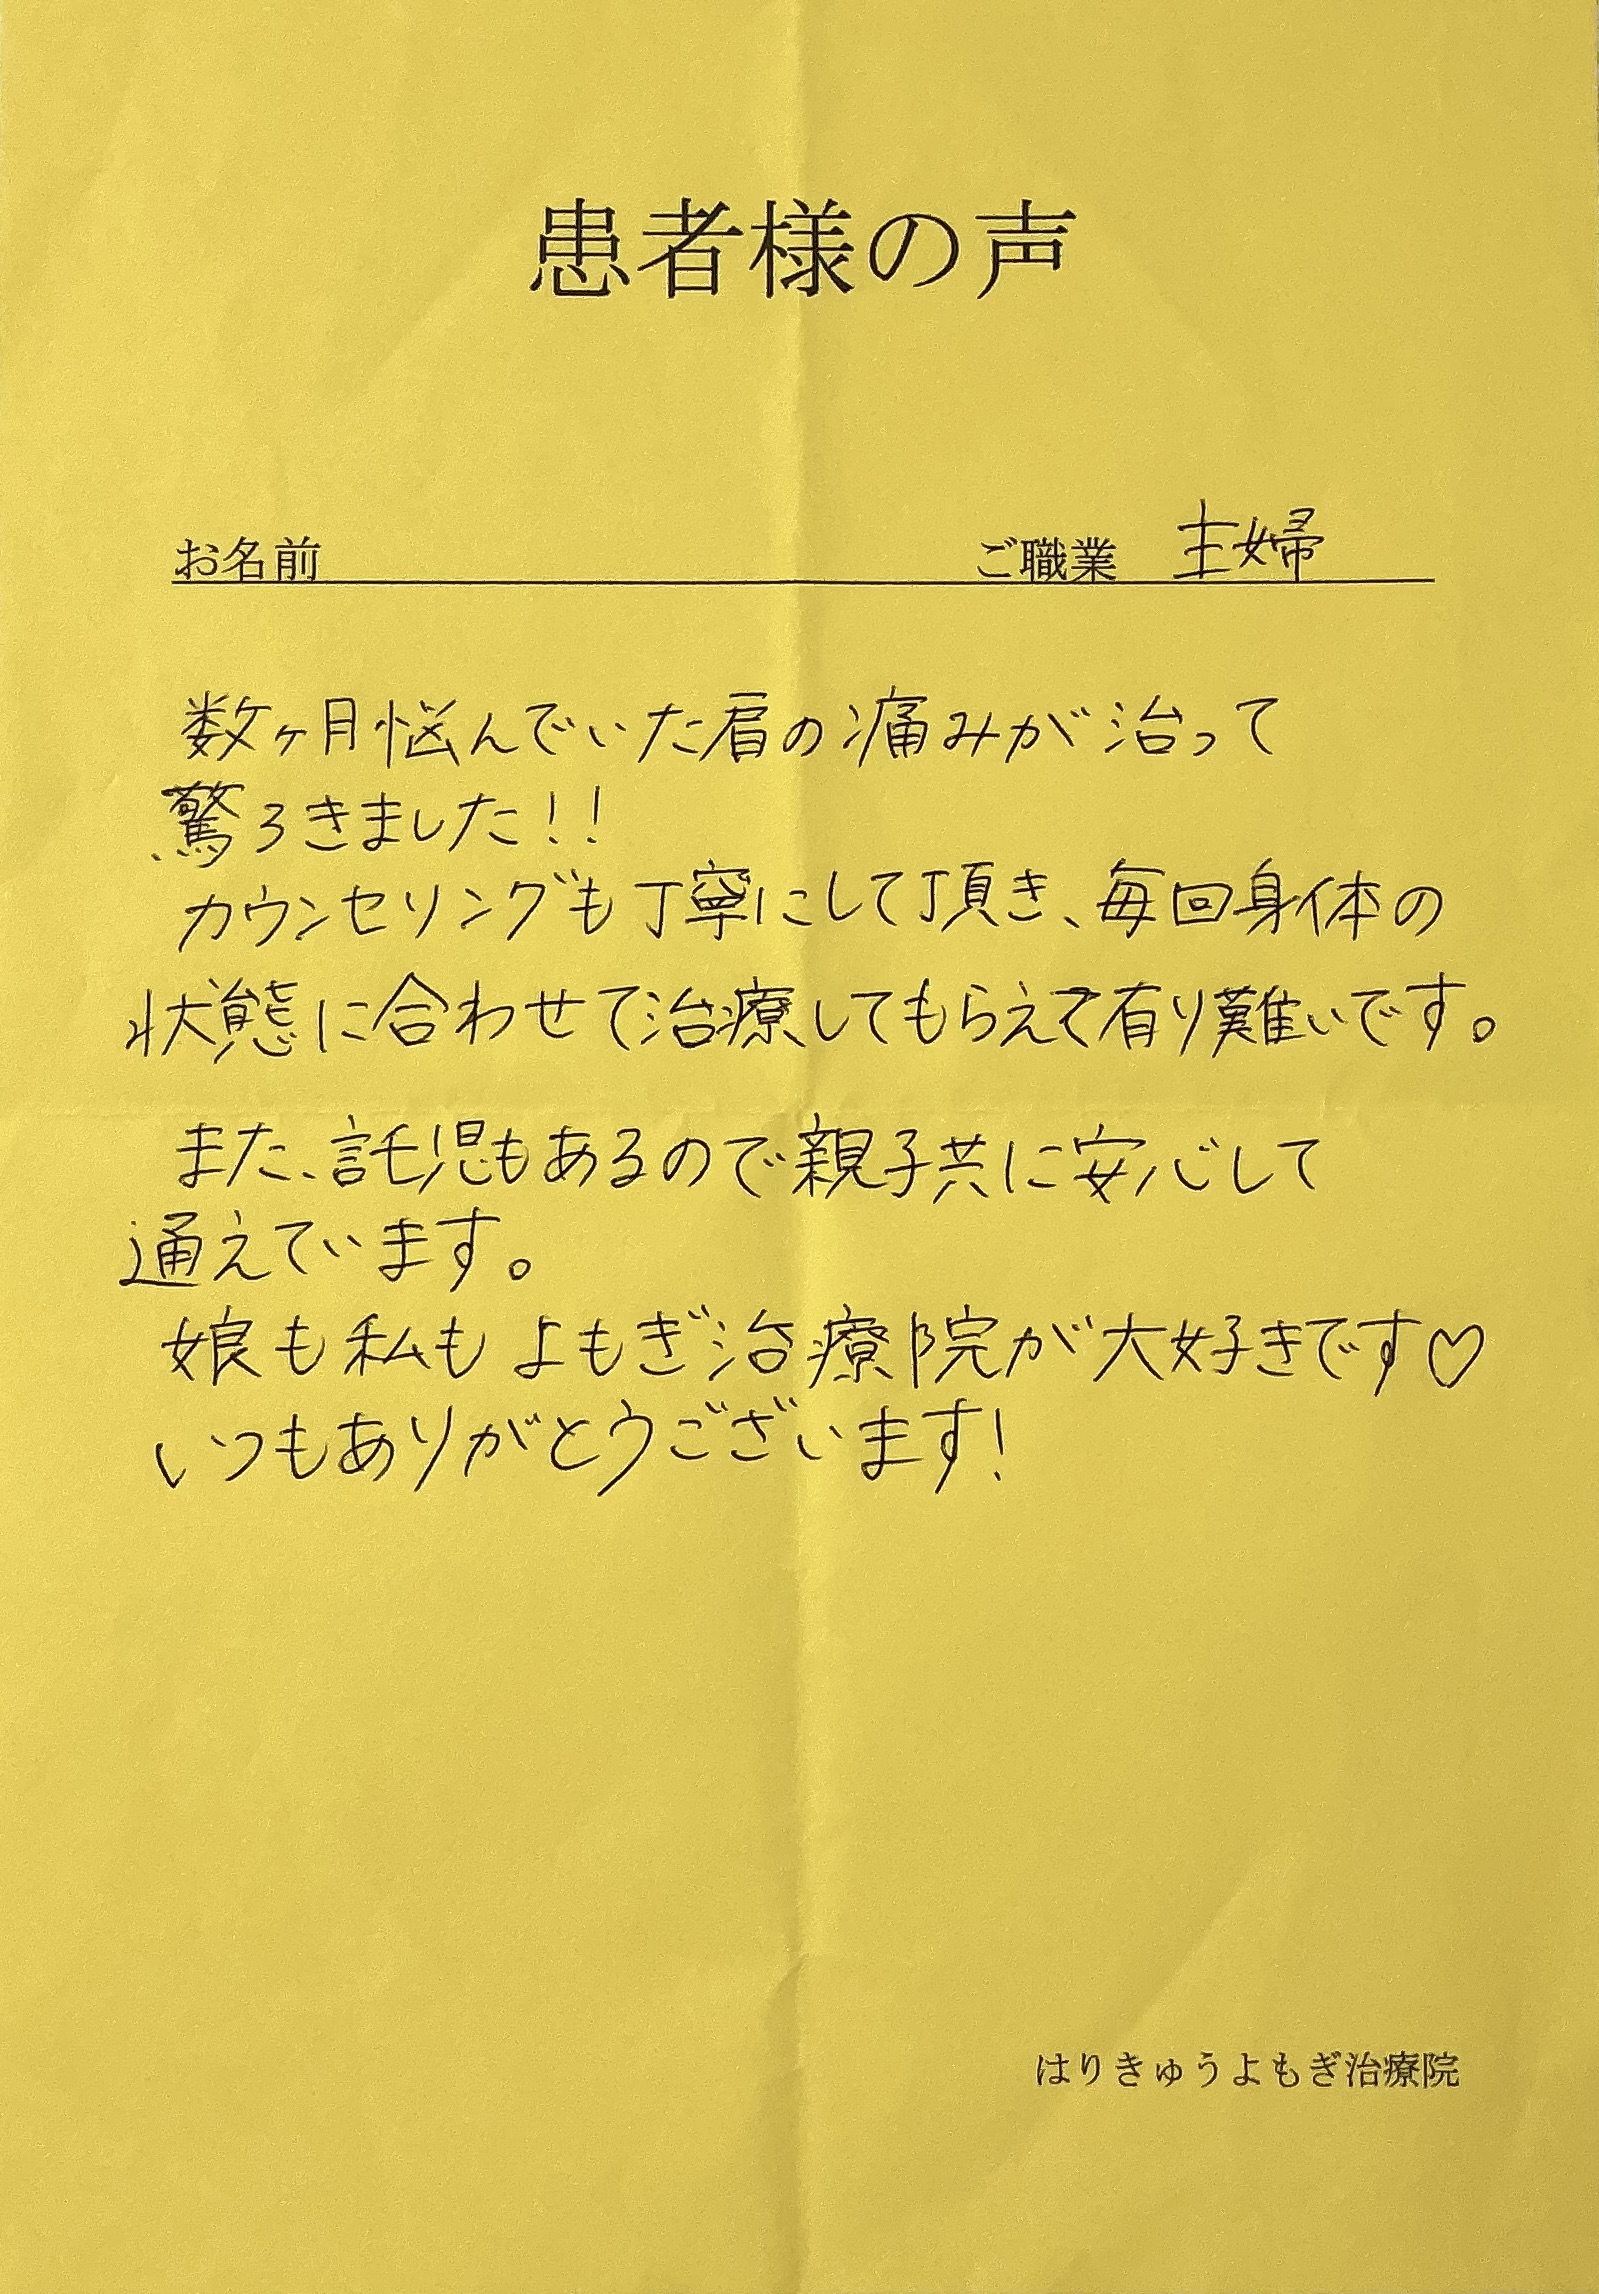 患者様の声
お名前 ご職業 主婦
数ヶ月悩んでいた肩の痛みが治って
驚ろきました!!
カウンセリングも丁寧にして頂き、毎回身体の
状態に合わせて治療してもらえて有り難いです。
また、託児もあるので親子共に安心して
通えています。
娘も私もよもぎ治療院が大好きです♡
いつもありがとうございます!
はりきゅうよもぎ治療院